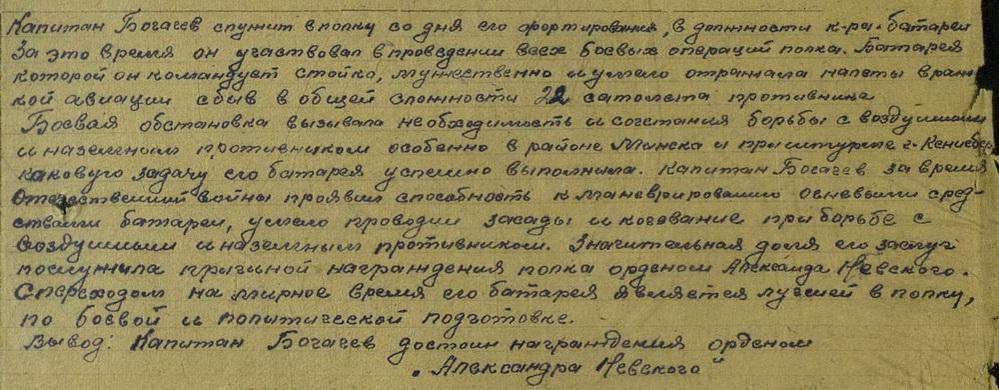 Капитан Богачев служит в полку со дня его формирования, в должности к-ра батареи
За это время он участвовал в проведении всех боевых операций полка. Батарея
которой он командует стойко, мужественно и умело отражала налеты вражес-
кой авиации сбив в общей сложности 22 самолета противника
Боевая обстановка вызывала необходимость и сочетания борьбы с воздушным
и наземным противником особенно в районе Минска и при штурме г. Кенигсберг
каковую задачу его батарея успешно выполнила. Капитан Богачев за время
Отечественной войны проявил способность к маневрированию огневыми сред-
ствами батареи, умело проводил засады и кочевание при борьбе с
воздушным и наземным противником. Значительная доля его заслуг
послужила причиной награждения полка орденом Александа Невского.
С переходом на мирное время его батарея является лучшей в полку,
по боевой и политической подготовке.
Вывод: Капитан Богачев достоин награждения орденом
„Александра Невского"